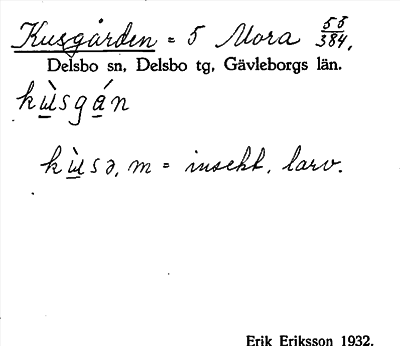 Kusgården = 5 Mora 55/384.
Delsbo sn, Delsbo tg, Gävleborgs län.
kùsgán
kùsə, m = insekt, larv.
Erik Eriksson 1932.